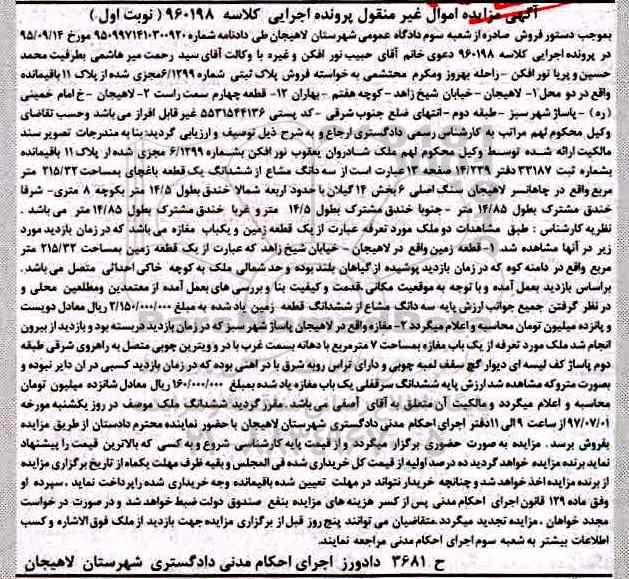 آگهی مزایده اموال غیر منقول پرونده اجرایی کلاسه ۹۶۰۱۹۸ ( نوبت اول )
بموجب دستور فروش صادره از شعبه سوم دادگاه عمومی شهرستان لاهیجان طی دادنامه شماره ۹۵۰۹۹۷۱۴۱۰۳۰۰۹۲۰ مورخ ۹۵/۰۹/۱۴
در پرونده اجرایی کلاسه ۹۶۰۱۹۸ دعوی خانم آقای حبیب نور افکن و غیره با وکالت آقای سید رحمت میر هاشمی بطرفیت محمد
حسین و پریا نور افکن - راحله بهروز ومکرم محتشمی به خواسته فروش پلاک ثبتی شماره ۶/۱۲۹۹مجزی شده از پلاک ۱۱ باقیمانده
واقع در دو محل ۱- لاهیجان - خیابان شیخ زاهد - کوچه هفتم - بهاران ۱۲- قطعه چهارم سمت راست ۲- لاهیجان - خ امام خمینی
(ره) - پاساژ شهر سبز - طبقه دوم - انتهای ضلع جنوب شرقی - کد پستی ۵۵۳۱۵۴۴۱۳۶ غیر قابل افراز می باشد وحسب تقاضای
وکیل محکوم لهم مراتب به کارشناس رسمی دادگستری ارجاع و به شرح ذیل توصیف و ارزیابی گردید: بنا به مندرجات تصویر سند
مالکیت ارائه شده توسط وکیل محکوم لهم ملک شادروان یعقوب نور افکن بشماره ۶/۱۲۹۹ مجزی شده از پلاک ۱۱ باقیمانده
بشماره ثبت ۳۳۱۸۷ دفتر ۱۴/۲۳۹ صفحه ۱۳ عبارت است از سه دانگ مشاع از ششدانگ یک قطعه باغچای بمساحت ۲۱۵/۳۲ متر
مربع واقع در چاهانسر لاهیجان سنگ اصلی ۶ بخش ۱۴ گیلان با حدود اربعه شمالا خندق بطول ۱۴/۵ متر بکوچه ۸ متری- شرقا
خندق مشترک بطول ۱۴/۸۵ متر - جنوبا خندق مشترک بطول ۱۴/۵ متر و غربا خندق مشترک بطول ۱۴/۸۵ متر می باشد .
نظریه کارشناس : طبق مشاهدات دو ملک مورد تعرفه عبارت از یک قطعه زمین و یکباب مغازه می باشد که در زمان بازدید مورد
زیر در آنها مشاهده شد. ۱-قطعه زمین واقع در لاهیجان - خیابان شیخ زاهد که عبارت از یک قطعه زمین بمساحت ۲۱۵/۳۲ متر
مربع واقع در دامنه کوه که در زمان بازدید پوشیده از گیاهان بلند بوده و حد شمالی ملک به کوچه خاکی احداثی متصل می باشد.
براساس بازدید بعمل آمده و با توجه به موقعیت مکانی ،قدمت و کیفیت بنا و بررسی های بعمل آمده از معتمدین ومطلعین محلی و
در نظر گرفتن جمیع جوانب ارزش پایه سه دانگ مشاع از ششدانگ قطعه زمین یاد شده به مبلغ ۲/۱۵۰/۰۰۰/۰۰۰ ریال معادل دویست
و پانزده میلیون تومان محاسبه و اعلام میگردد ۲- مغازه واقع در لاهیجان پاساژ شهر سبز که در زمان بازدید دربسته بود و بازدید از بیرون
انجام شد ملک مورد تعرفه از یک باب مغازه بمساحت ۷ مترمربع با دهانه بسمت غرب با در و ویترین چوبی متصل به راهروی شرقی طبقه
دوم پاساژ کف لیسه ای دیوار گچ سقف لمبه چوبی و دارای تراس رو به شرق با در آهنی بوده که در زمان بازدید کسبی در ان دایر نبوده و
بصورت متروکه مشاهده شد ارزش پایه ششدانگ سرقفلی یک باب مغازه یاد شده بمبلغ ۱۶۰/۰۰۰/۰۰۰ ریال معادل شانزده میلیون تومان
محاسبه و اعلام میگردد و مالکیت آن متعلق به آقای آصفی می باشد. مقرر گردید ششدانگ ملک موصف در روز یکشنبه مورخه
۹۷/۰۷/۰۱ از ساعت ۹ الی ۱۱ دفتر اجرای احکام مدنی دادگستری شهرستان لاهیجان با حضور نماینده محترم دادستان از طریق مزایده
بفروش برسد . مزایده به صورت حضوری برگزار میگردد و از قیمت پایه کارشناسی شروع و به کسی که بالاترین قیمت را پیشنهاد
نماید برنده مزایده خواهد گردید ده درصد اولیه از قیمت کل خریداری شده فی المجلس و بقیه ظرف مهلت یکماه از تاریخ برگزاری مزایده
از برنده مزایده اخذ خواهد شد و چنانچه خریدار نتواند در مهلت تعیین شده باقیمانده وجه خریداری شده راپرداخت نماید ، سپرده او
وفق ماده ۱۲۹ قانون اجرای احکام مدنی پس از کسر هزینه های مزایده بنفع صندوق دولت ضبط خواهد شد و در صورت درخواست
مجدد خواهان ، مزایده تجدید میگردد .متقاضیان می توانند پنج روز قبل از برگزاری مزایده جهت بازدید از ملک فوق الاشاره و کسب
اطلاعات بیشتر به شعبه سوم اجرای احکام مدنی مراجعه نمایند.
ح ۳۶۸۱ دادورز اجرای احکام مدنی دادگستری شهرستان لاهیجان